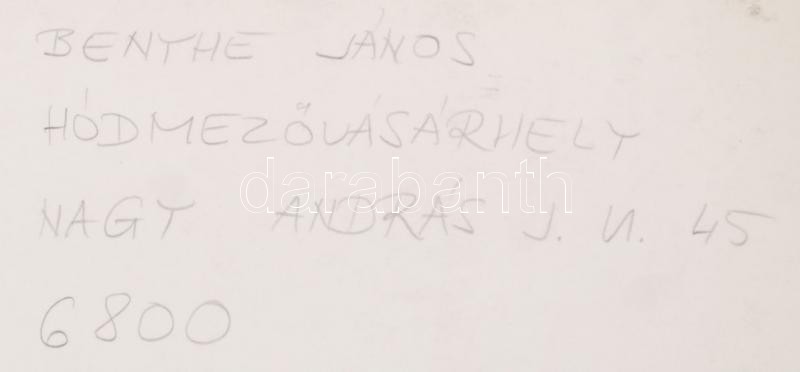 BENTHE JÁNOS
HÓDMEZŐVÁSÁRHELY
darabanth
NAGY ANDRÁS J. U. 45
6800